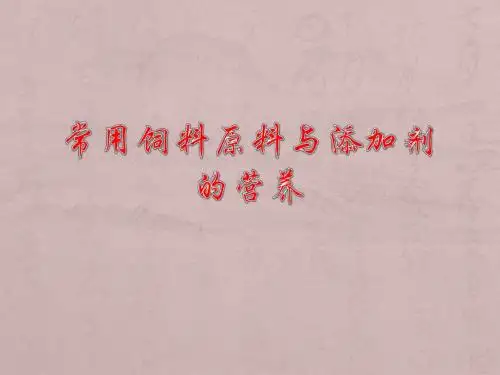 常用饲料原料与添加剂
的营养